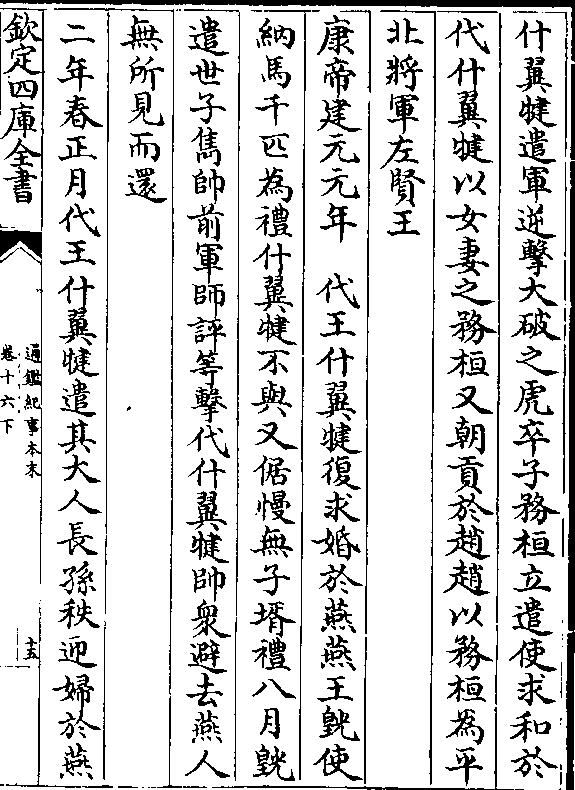 什翼犍遣軍逆擊大破之虎卒子務桓立遣使求和於
代什翼犍以女妻之務桓又朝貢於趙趙以務桓為平
北將軍左賢王
康帝建元元年　代王什翼犍復求婚於燕燕王皝使
納馬千匹為禮什翼犍不與又倨慢無子壻禮八月皝
遣世子雋帥前軍師評等擊代什翼犍帥衆避去燕人
無所見而還
二年春正月代王什翼犍遣其大人長孫秩迎婦於燕
欽定四庫全書
通鑑紀事本末
卷十六下
十五